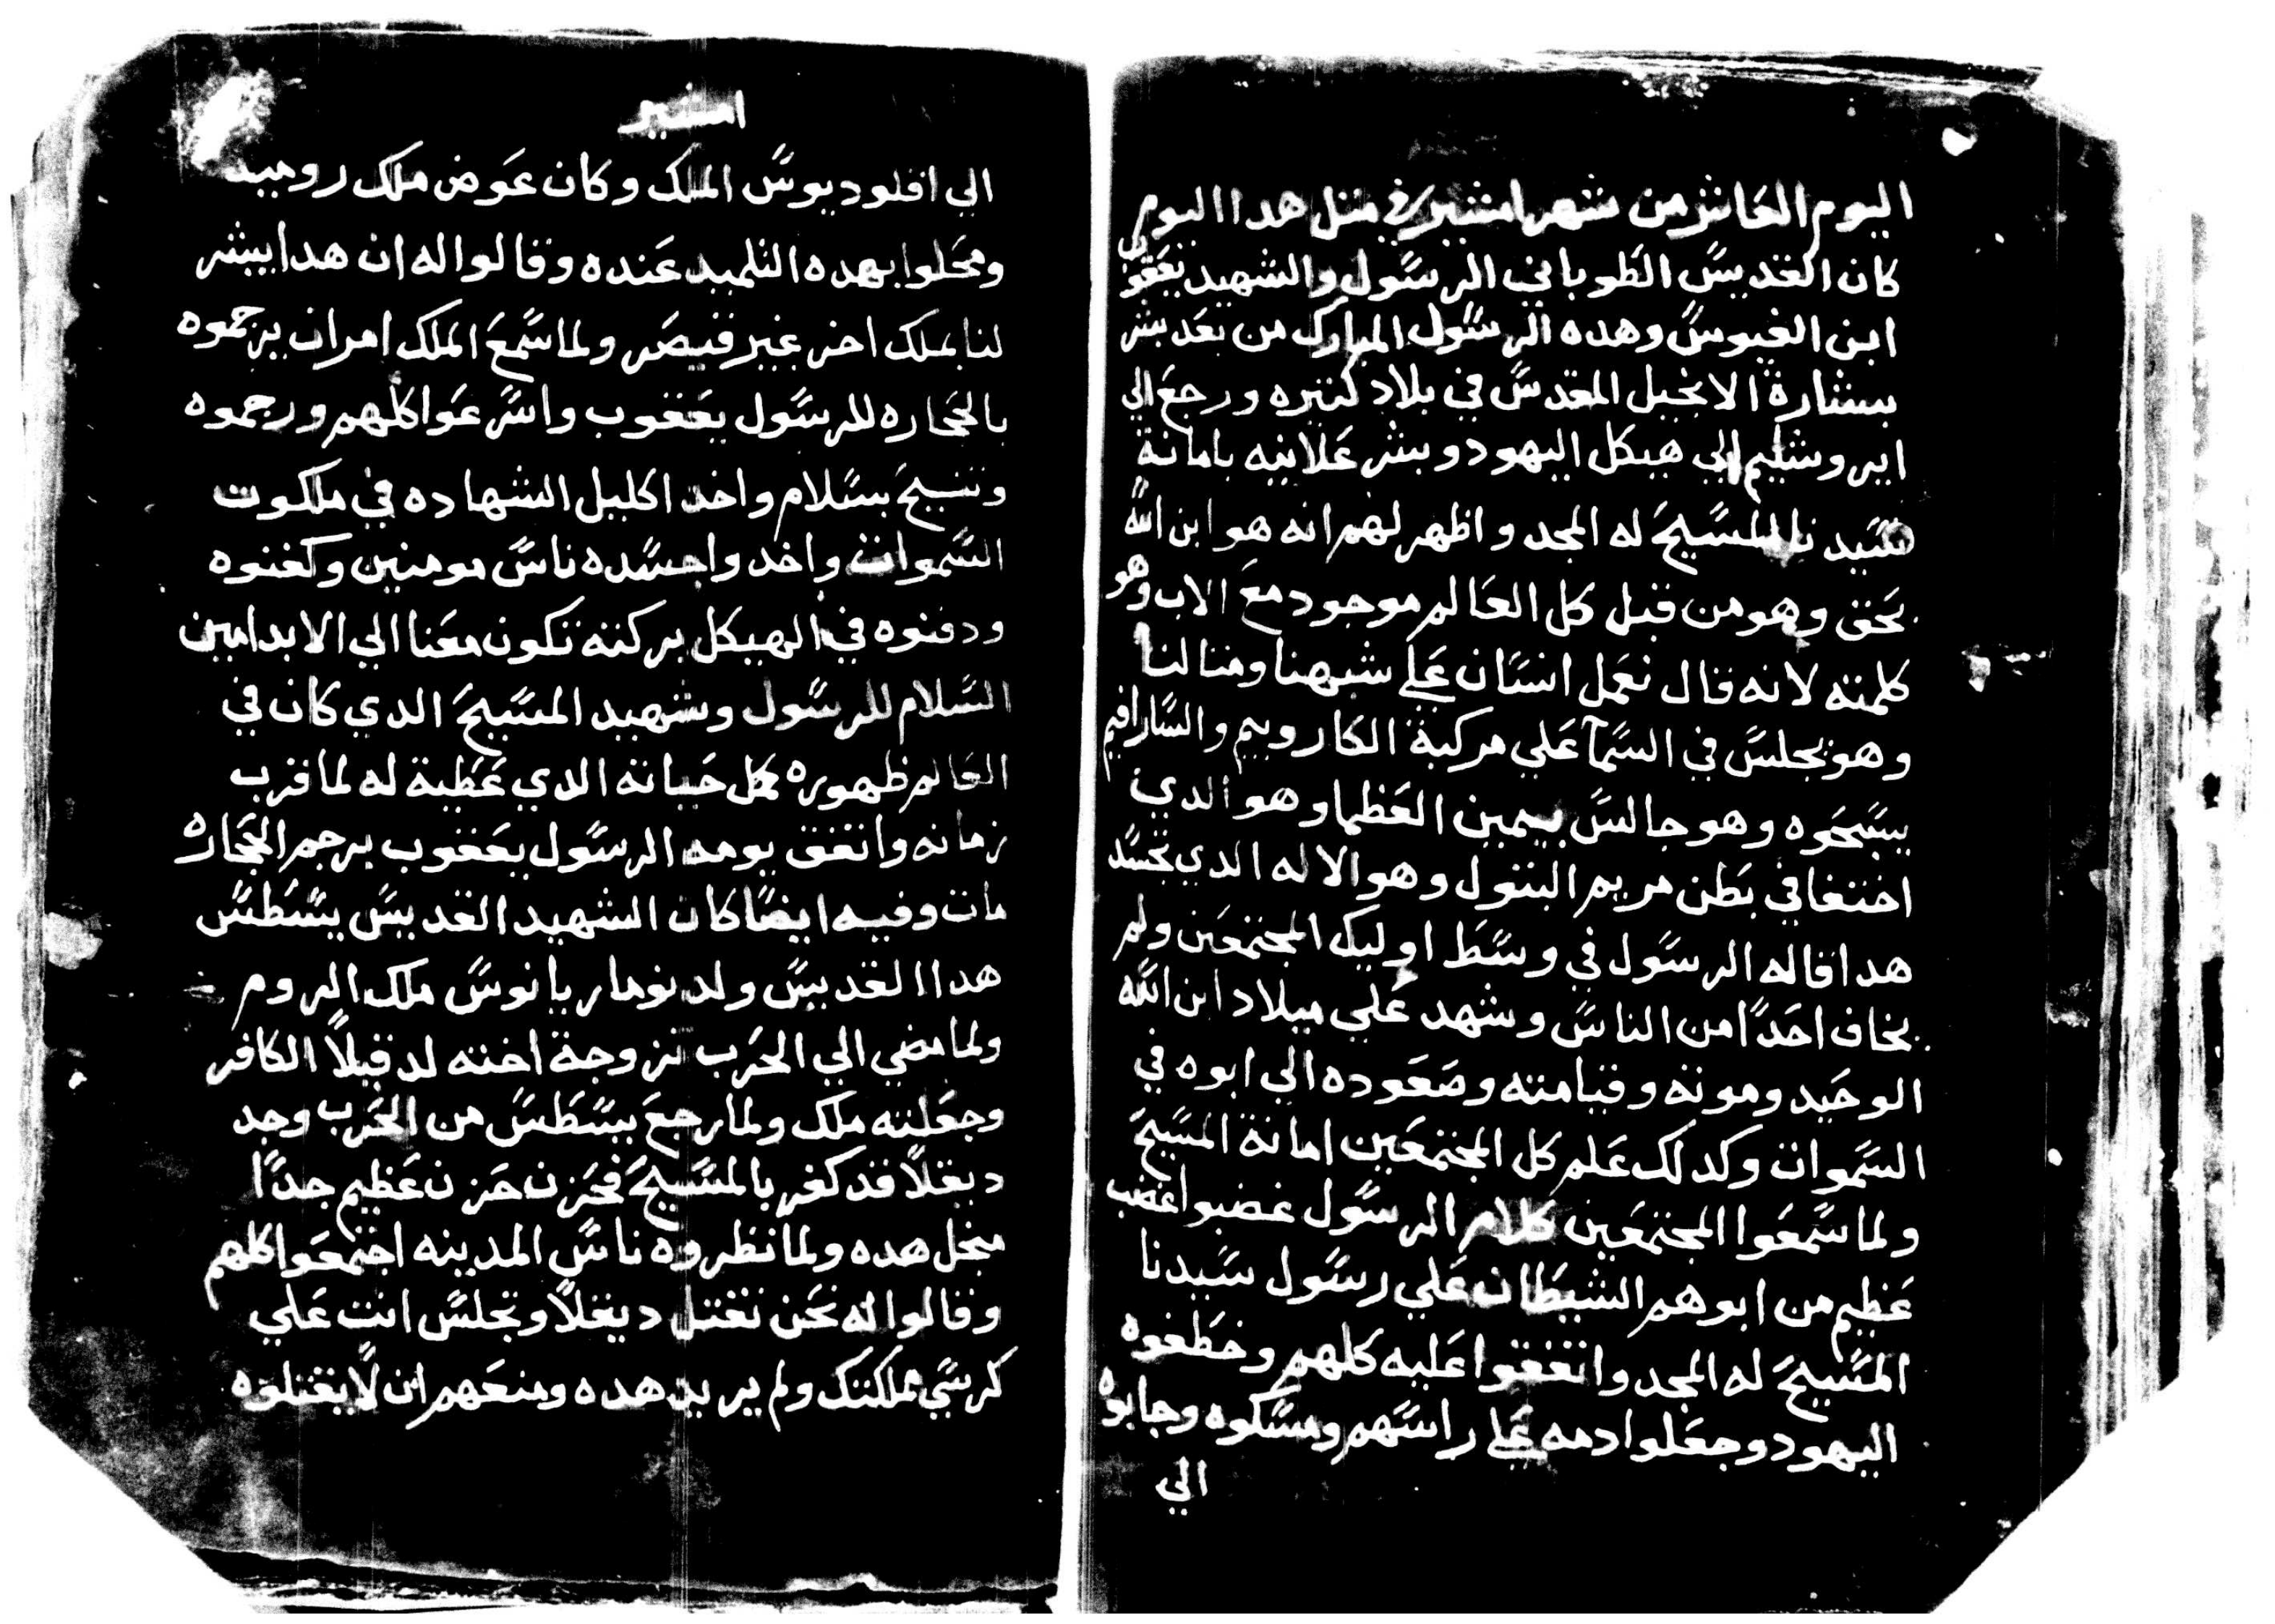 اليوم العاشر من شهر امشير في مثل هدا اليوم
كان القديس الطوباني الرسول والشهيد يعقوب
ابن الفيوس وهده الرسول المبارك من بعد بشر
ببشارة الانجيل المقدس في بلاد كتيره ورجع الي
ايروشليم الي هيكل اليهود وبشر علانيه بامانة
سيدنا المسيح له المجد واظهر لهم انه هو ابن الله
بحق وهو من قبل كل العالم موجود مع الاب وهو
كلمته لانه قال نعمل انسان علي شبهنا ومتالنا
وهو يجلس في السمآ علي مركبة الكاروبيم والسارافيم
يسبحوه وهو جالس بيمين العظما وهو الدي
اختفا في بطن مريم البتول وهو الاله الدي تجسد
هدا قاله الرسول في وسط اوليك المجتمعين ولم
يخاف احدًا من الناس وشهد علي ميلاد ابن الله
الوحيد وموته وقيامته وصعوده الي ابوه في
السموات وكدلك علم كل المجتمعين امانة المسيح
ولما سمعوا المجتمعين كلام الرسول غضبوا غضب
عظيم من ابوهم الشيطان علي رسول سيدنا
المسيح له المجد واتفقوا عليه كلهم وخطفوه
اليهود وجعلوا دمه علي راسهم ومسكوه وجابوه
الي
امشير
الي اقلوديوس الملك وكان عوض ملك روميه
ومحلوا بهده التلميد عنده وقالوا له ان هدا يبشر
لنا بملك اخر غير قيصر ولما سمع الملك امر ان يرجموه
بالحجاره للرسول يعقوب واسرعوا كلهم ورجموه
وتنيح بسلام واخد اكليل الشهاده في ملكوت
السموات واخدوا جسده ناس مومنين وكفنوه
ودفنوه في الهيكل بركته تكون معنا الي الابد امين
السلام للرسول وشهيد المسيح الدي كان في
العالم ظهوره كل حياته الدي عطية له لما قرب
زمانه واتفق يومه الرسول يعقوب برجم الحجاره
مات وفيه ايضًا كان الشهيد القديس يسطس
هدا القديس ولد نوماريانوس ملك الروم
ولما مضي الي الحرب تزوجة اخته لدقيلاً الكافر
وجعلته ملك ولما رجع يسطس من الحرب وجد
ديقلاً قد كفر بالمسيح فحزن حزن عظيم جدًا
منجل هده ولما نظروه ناس المدينه اجتمعوا كلهم
وقالوا له نحن نقتل ديقلاً وتجلس انت علي
كرسي مملكتك ولم يريد هده ومنعهم ان لا يقتلوه